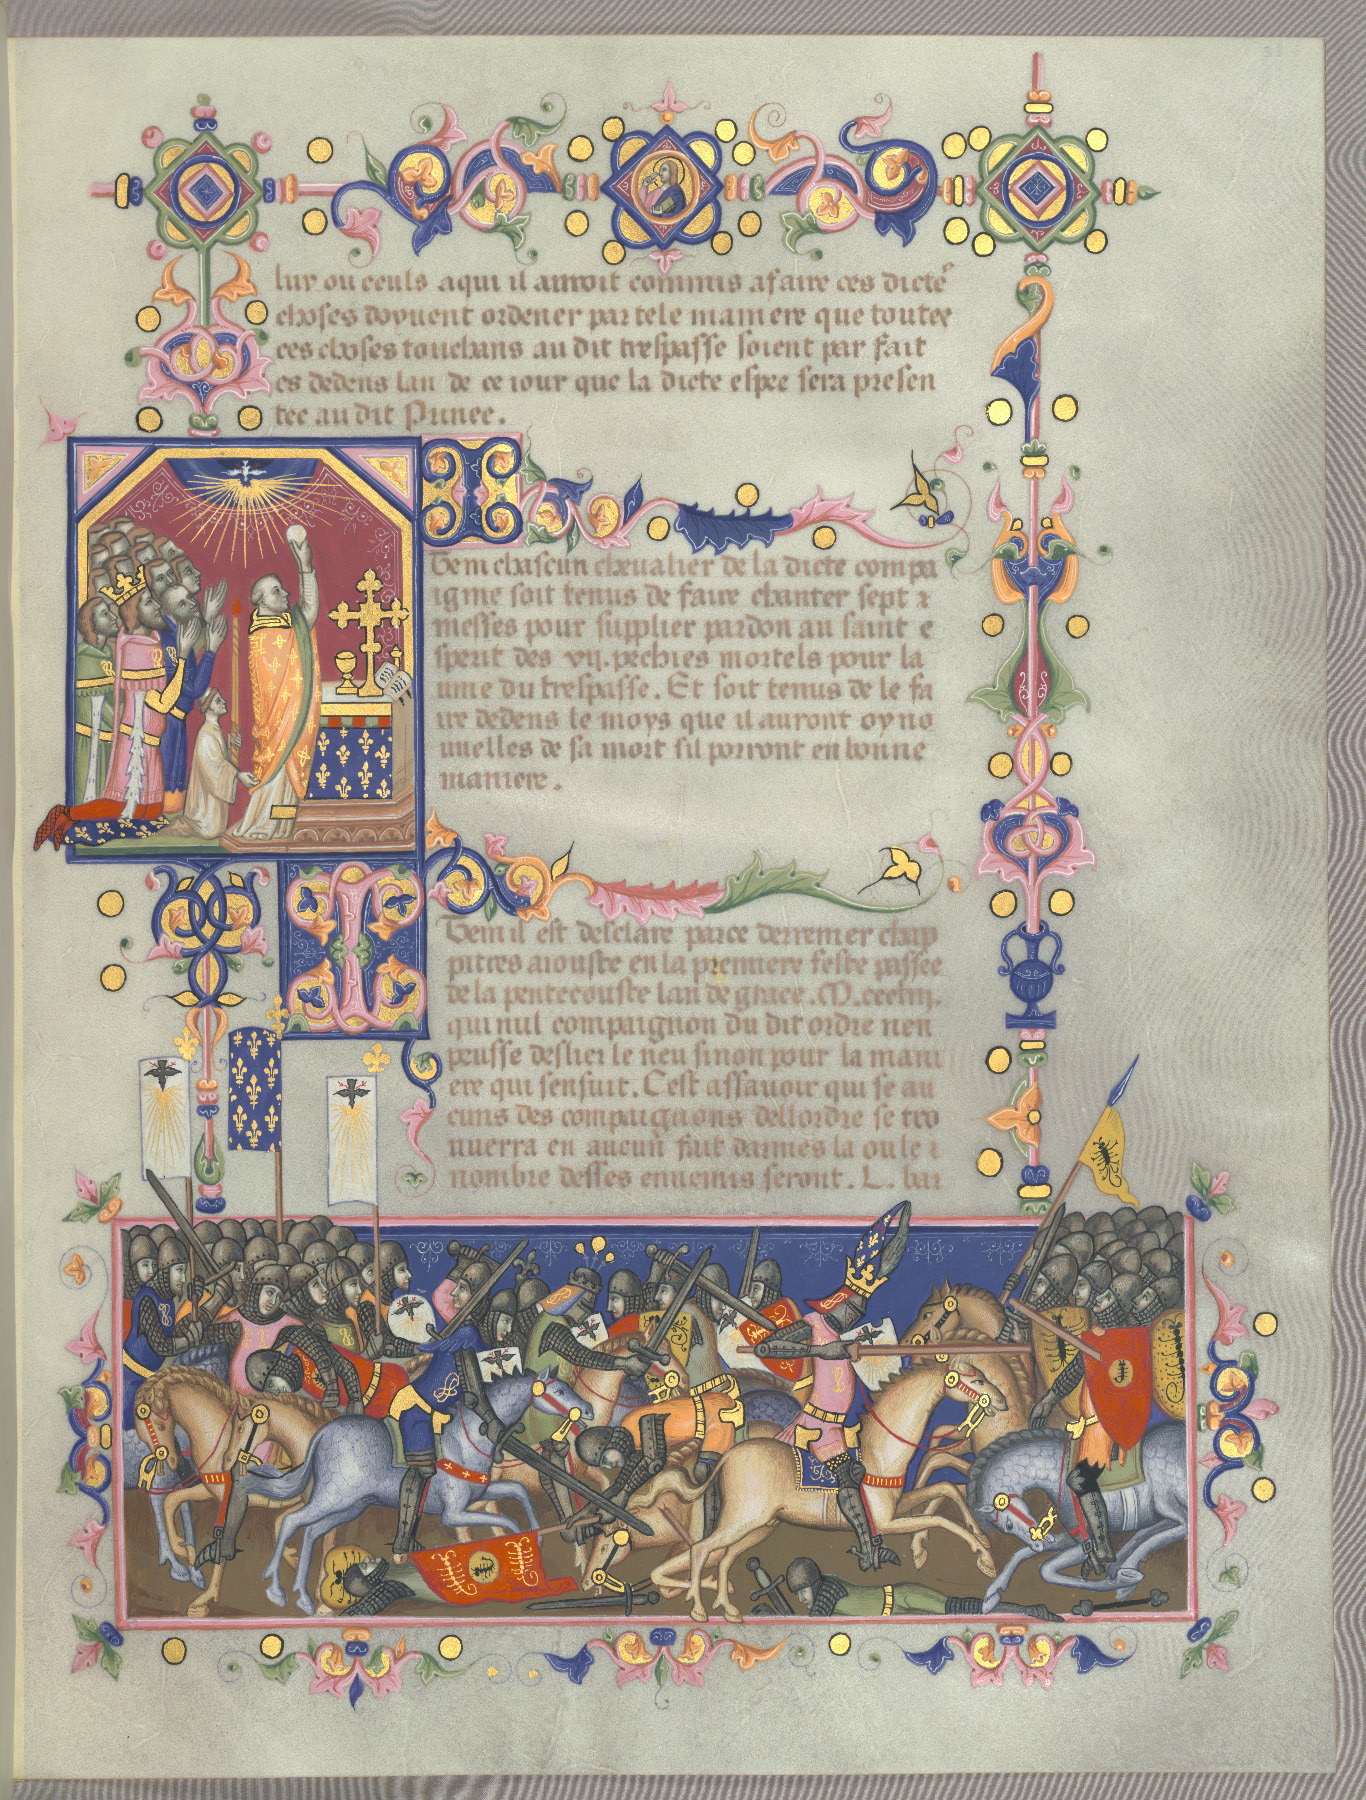 lui ou ceuls a qui il auroit commis a faire ces dictes
choses doyuent ordener par tele maniere que toutes
ces choses touchans au dit trespasse soient par fait
es dedens lan de ce iour que la dicte espee sera presen
tee au dit Prince.
Item chascun cheualier de la dicte compa
ignie soit tenus de faire chanter sept
messes pour supplier pardon au saint e
sperit des vij. pechies mortels pour la
ame du trespasse. Et soit tenus de le fa
ire dedens le moys que il auront oy no
uuelles de sa mort sil porront en bonne
maniere.
Item il est desclare par ce derrenier chap
pitres aiouste en la premiere feste passee
de la pentecouste lan de grace. M.
qui nul compaignon du dit ordre nen
peusse deslier le neu sinon pour la mani
ere qui sensuit. Cest assauoir qui se au
cuns des compaignons dellordre se tro
uuerra en aucun fait darmes la ou le
nombre desses ennemis seront. L. bar